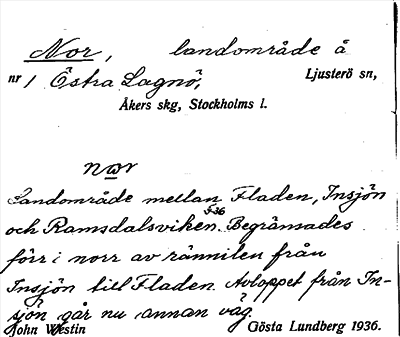 Nor, landområde å
nr 1 Östra Lagnö, Ljusterö sn,
Åkers skg, Stockholms l.
nor
Landområde mellan Fladen, Insjön
och Ramsdalsviken. Begränsades
förr i norr av rännilen från
Insjön till Fladen. Avloppet från In-
sjön går nu annan väg.
John Westin Gösta Lundberg 1936.